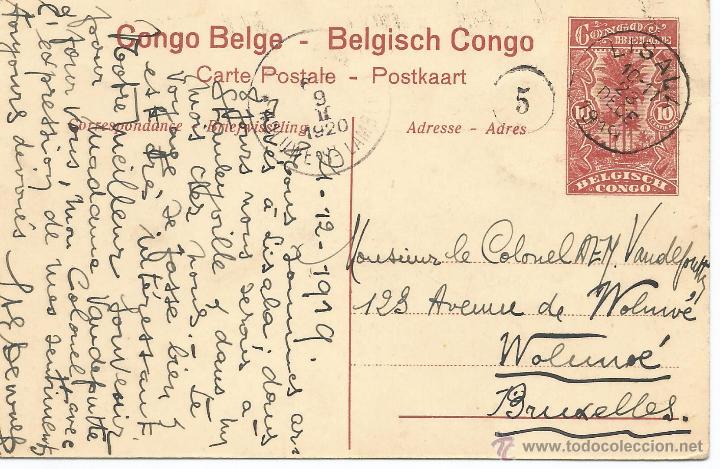 Congo Belge - Belgisch Congo
Carte Postale - Postkaart
Correspondance - Briefwisseling
Adresse - Adres
CONGO BELGE
10
10
BELGISCH CONGO
5
LISALA
DEC
1919
9
1920
21-12-1919.
Nous sommes ar-
rivés à Lisala; dans
jours nous serons à
Stanleyville & dans
mois chez nous. Le
voyage se passe bien &
est très intéressant
Notre meilleur souvenir
pour Madame Vandeputte
& pour vous, mon Colonel, avec
l'expression de mes sentiments
toujours dévoués
Monsieur le Colonel AEM. Vandeputte
123 Avenue de Woluwé
Woluwé
Bruxelles.
www.todocoleccion.net